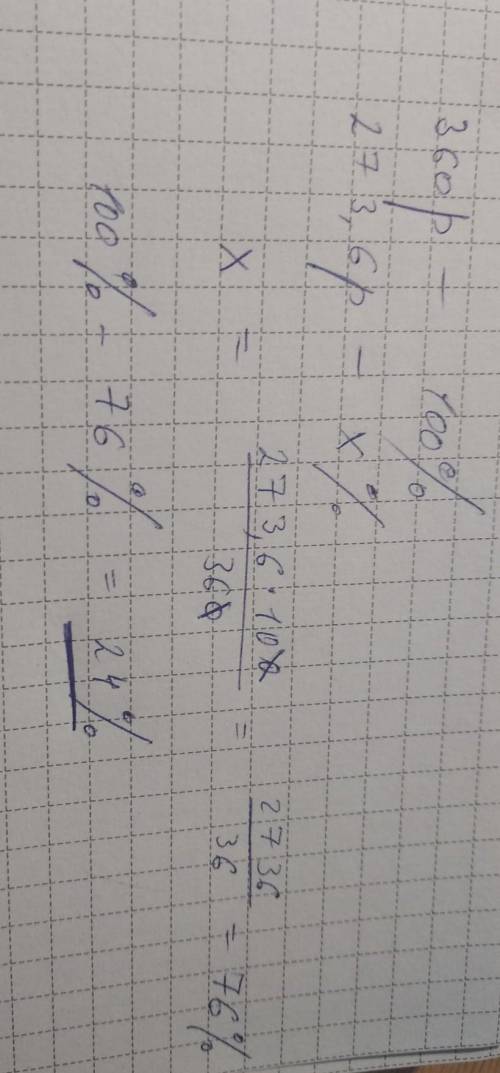 360р — 100%
273,6р — x%
x = 273,6 · 100 / 360 = 2736 / 36 = 76%
100% - 76% = 24%